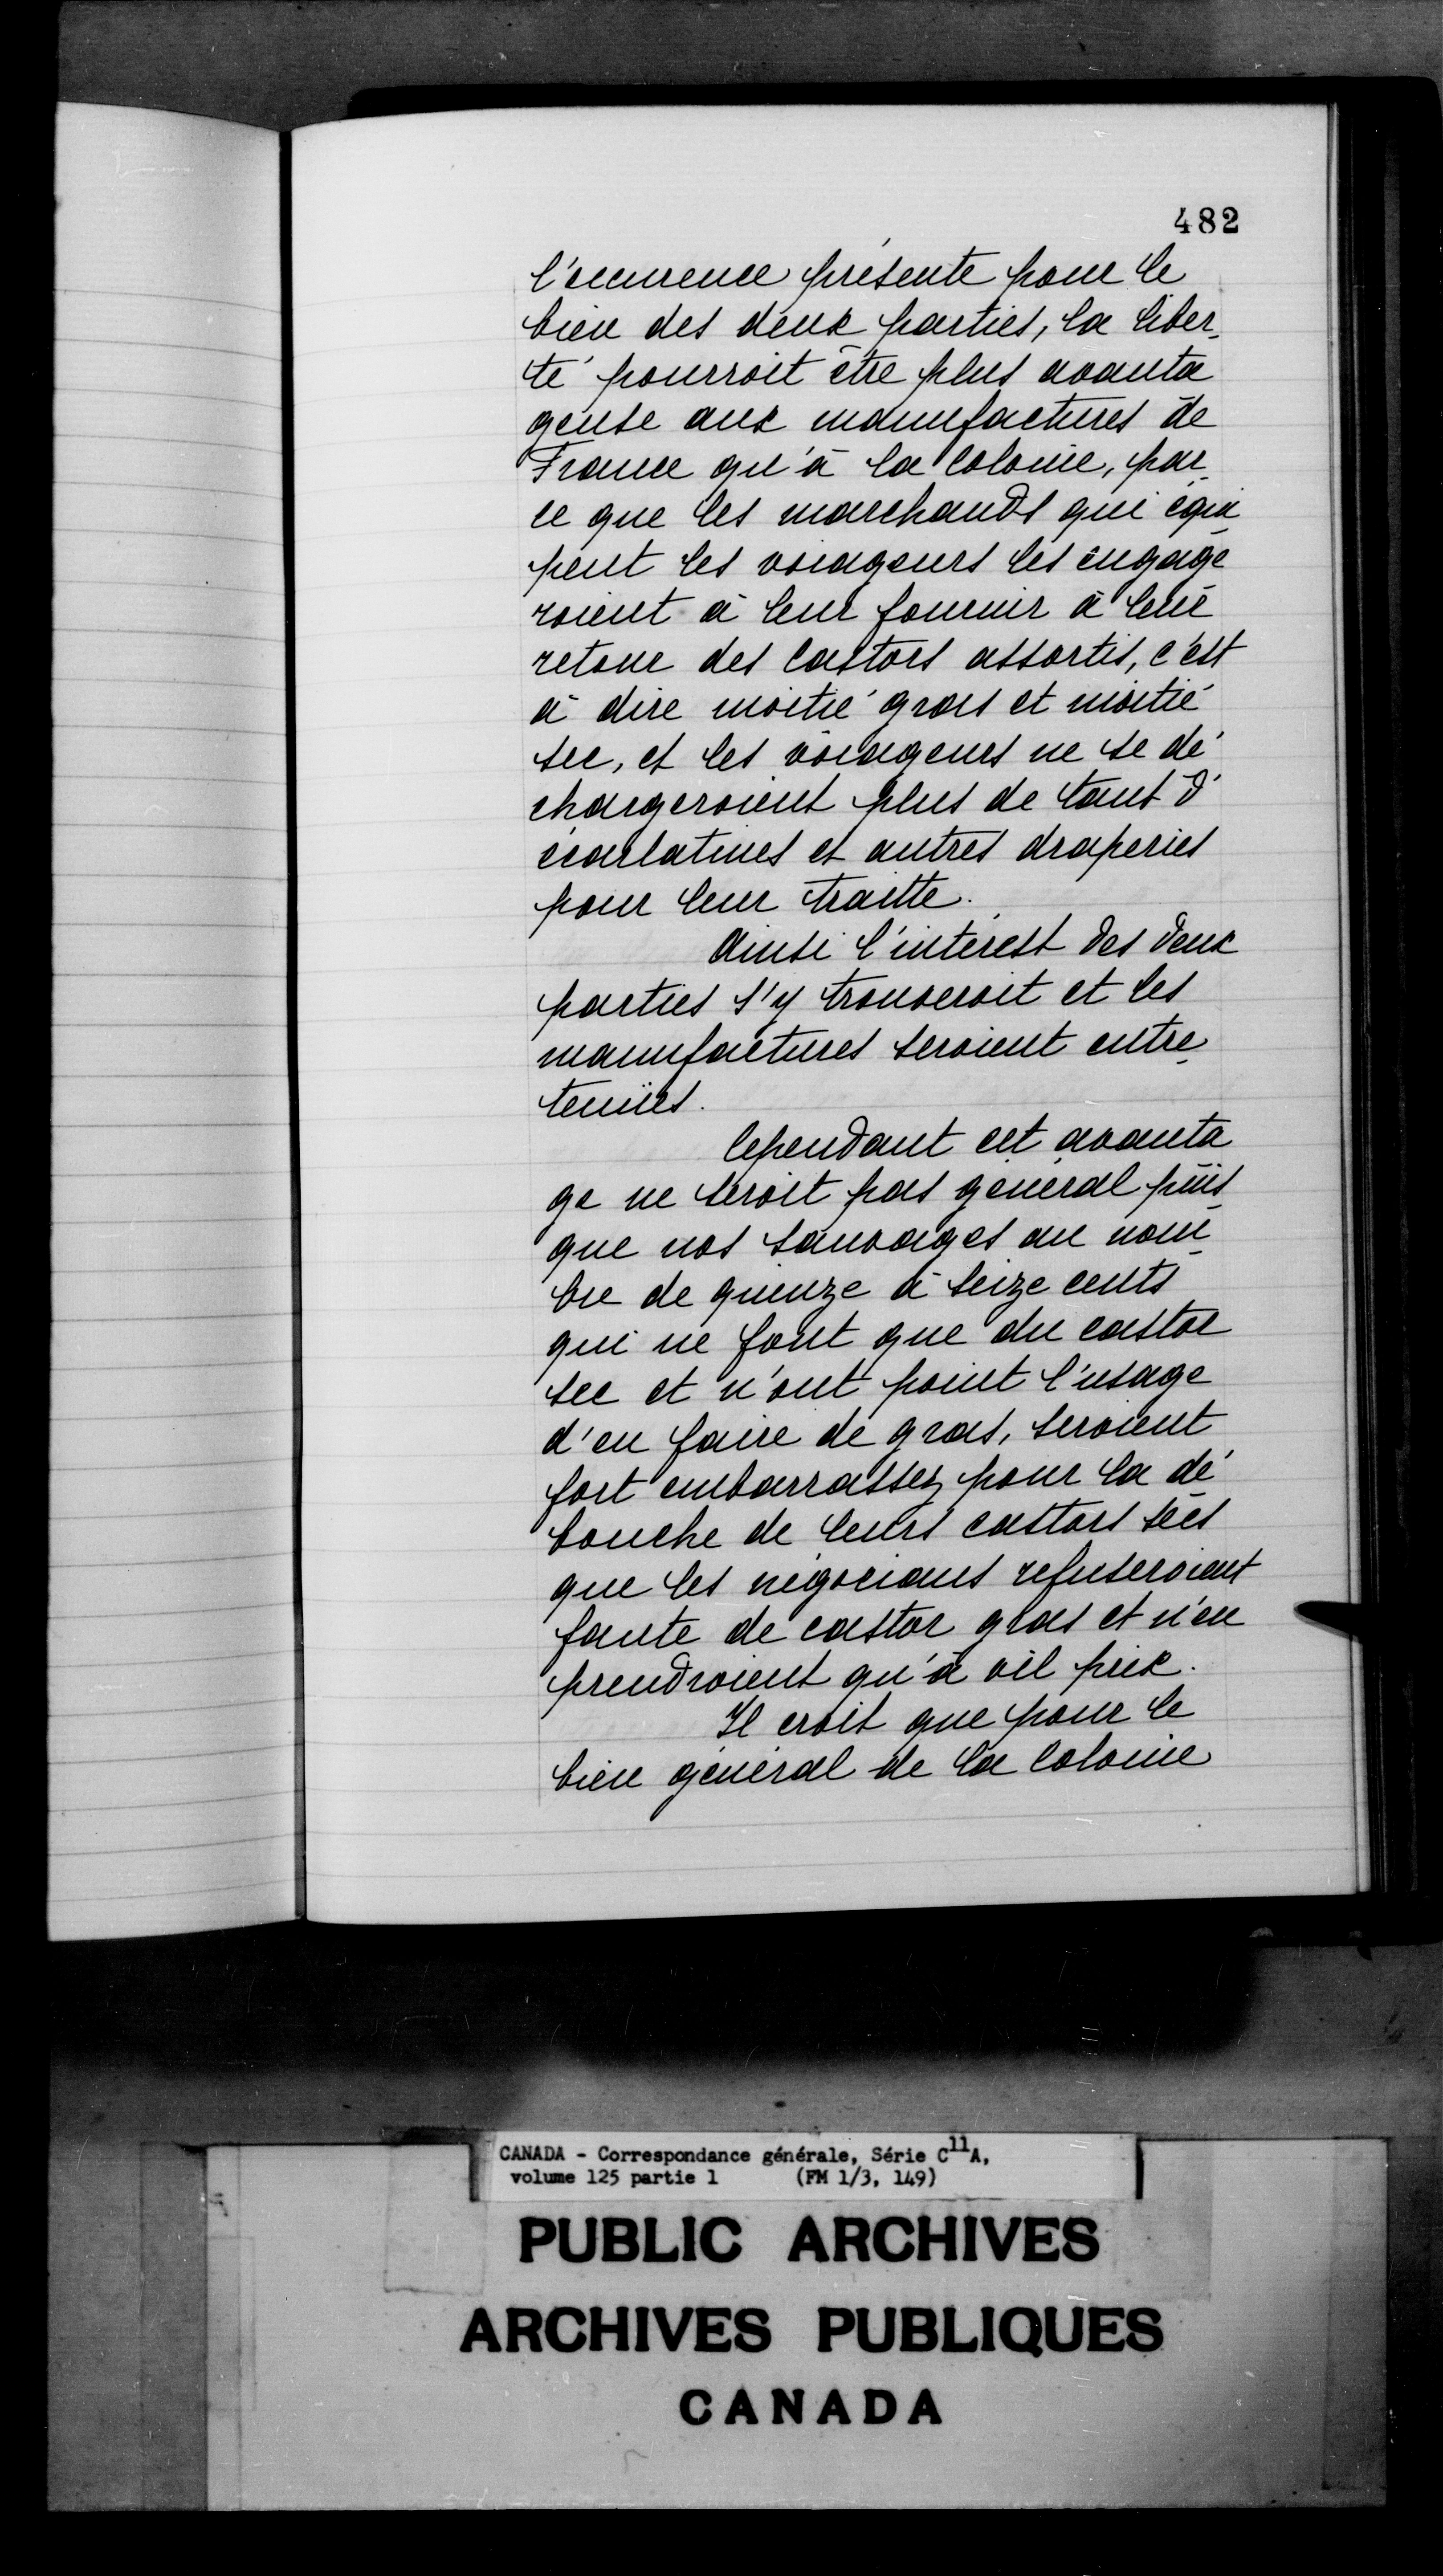 482
l'occurence présente pour le
bien des deux parties, la liber-
té pourroit être plus avanta
geuse aux manufactures de
France qu'à la Colonie, par-
ce que les marchands qui équi-
pent les voiageurs les engage
roient à leur fournir à leur
retour des Castors assortis, c'est
à dire moitié gras et moitié
sec, et les voiageurs ne se dé
chargeroient plus de tant d'
écarlatines et autres draperies
pour leur traitte.
Ainsi l'intérest des deux
parties s'y trouveroit et les
manufactures seroient entre-
tenües.
Cependant cet avanta
ge ne seroit pas général puis-
que nos Sauvages au nom-
bre de quinze à seize cents
qui ne font que du castor
sec et n'ont point l'usage
d'en faire de gras, seroient
fort embarrassez pour la dé
bouche de leurs castors secs
que les négocians refuseroient
faute de castor gras et n'en
prendroient qu'à vil prix.
Il croit que pour le
bien général de la Colonie
CANADA - Correspondance générale, Série C11A,
volume 125 partie 1 (FM 1/3, 149)
PUBLIC ARCHIVES
ARCHIVES PUBLIQUES
CANADA